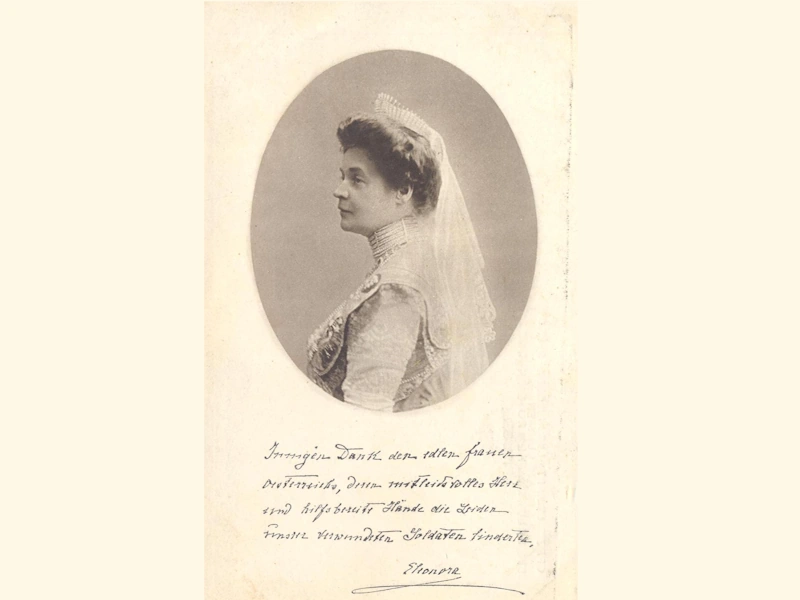 Innigen Dank den edlen Frauen
Oesterreichs, deren mitleidsvolles Herz
und hilfsbereite Hände die Leiden
unsrer verwundeten Soldaten linderten,
Eleonora